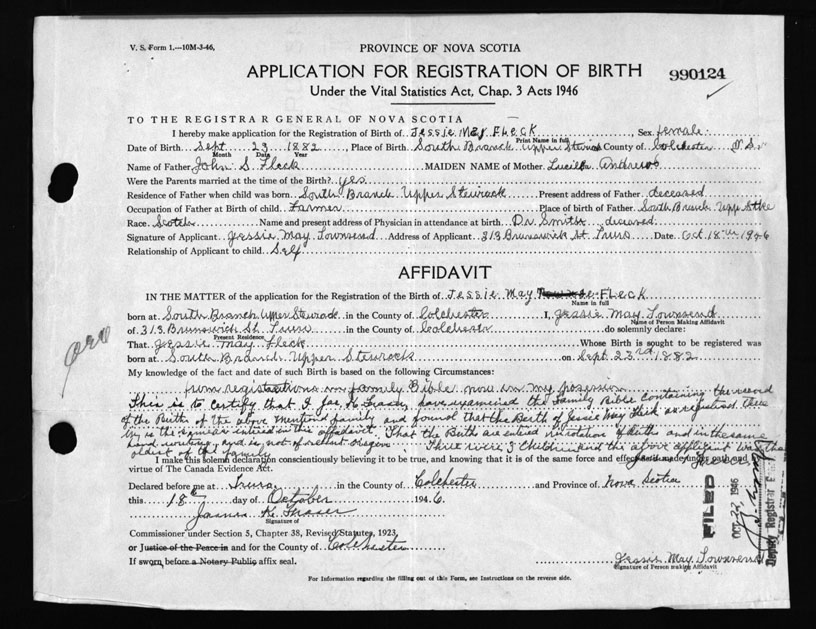 V. S. Form 1.—10M-3-46.
PROVINCE OF NOVA SCOTIA
APPLICATION FOR REGISTRATION OF BIRTH
990124
Under the Vital Statistics Act, Chap. 3 Acts 1946
TO THE REGISTRAR GENERAL OF NOVA SCOTIA
I hereby make application for the Registration of Birth of Jessie May Fleck, Sex female
Print Name in full
Date of Birth Sept 23 1882, Place of Birth South Branch Upper Stewiack County of Colchester N.S.
Month Date Year
Name of Father John S. Fleck MAIDEN NAME of Mother Lucilla Andrews
Were the Parents married at the time of the Birth? yes
Residence of Father when child was born South Branch Upper Stewiack Present address of Father deceased
Occupation of Father at Birth of child Farmer Place of birth of Father South Branch Upp Stke
Race Scotch Name and present address of Physician in attendance at birth Dr Smith deceased
Signature of Applicant Jessie May Townsend Address of Applicant 313 Brunswick St. Truro Date Oct 18th 1946
Relationship of Applicant to child Self
AFFIDAVIT
IN THE MATTER of the application for the Registration of the Birth of Jessie May Fleck
Name in full
born at South Branch Upper Stewiack in the County of Colchester I, Jessie May Townsend
Name of Person Making Affidavit
of 313 Brunswick St. Truro in the County of Colchester do solemnly declare:
Present Residence
That Jessie May Fleck Whose Birth is sought to be registered was
born at South Branch Upper Stewiack on Sept 23rd 1882
My knowledge of the fact and date of such Birth is based on the following Circumstances:
from registrations in family Bible now in my possession
This is to certify that I Jas. K. Fraser, have examined the Family Bible containing the record
of the Births of the above mentioned family and found that the Birth of Jessie May Fleck as registered
is the same entered in this affidavit. That the Birth are entered in rotation of Births and in the same
hand writing, and is not of recent origin. There were 3 Children and the above applicant was the
oldest of the family
I make this solemn declaration conscientiously believing it to be true, and knowing that it is of the same force and effect as if made under oath and
virtue of The Canada Evidence Act.
Declared before me at Truro in the County of Colchester and Province of Nova Scotia
this 18th day of October 1946
James K. Fraser
Signature of
Commissioner under Section 5, Chapter 38, Revised Statutes, 1923
or Justice of the Peace in and for the County of Colchester
If sworn before a Notary Public affix seal.
Jessie May Townsend
Signature of Person making Affidavit
For Information regarding the filling out of this Form, see Instructions on the reverse side.
FILED
OCT 22 1946
Deputy Registrar